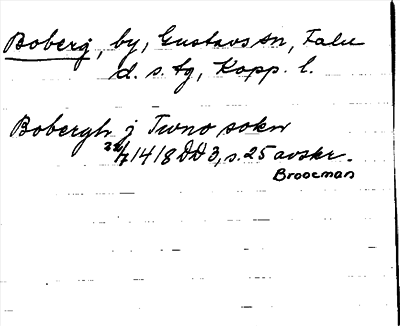 Boberg, by, Gustavs sn, Falu
d. s. tg, Kopp. l.
Bobergh j Twno sokn
22/7 1418 DD 3, s. 25 avskr.
Brooeman